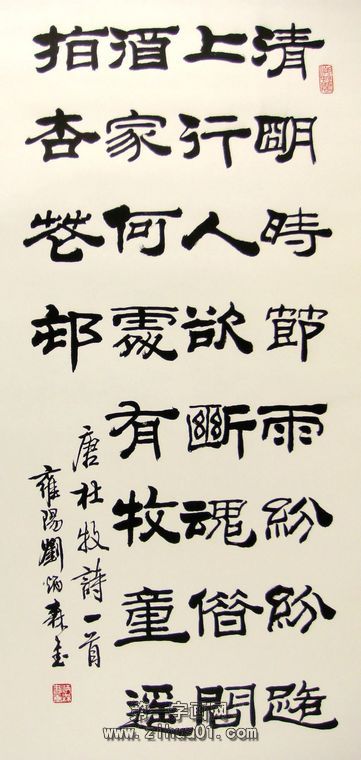 清明時節雨紛紛路
上行人欲斷魂借問
酒家何處有牧童遥
指杏花邨
唐杜牧詩一首
雍陽劉炳森書
字画网
www.zihua01.com